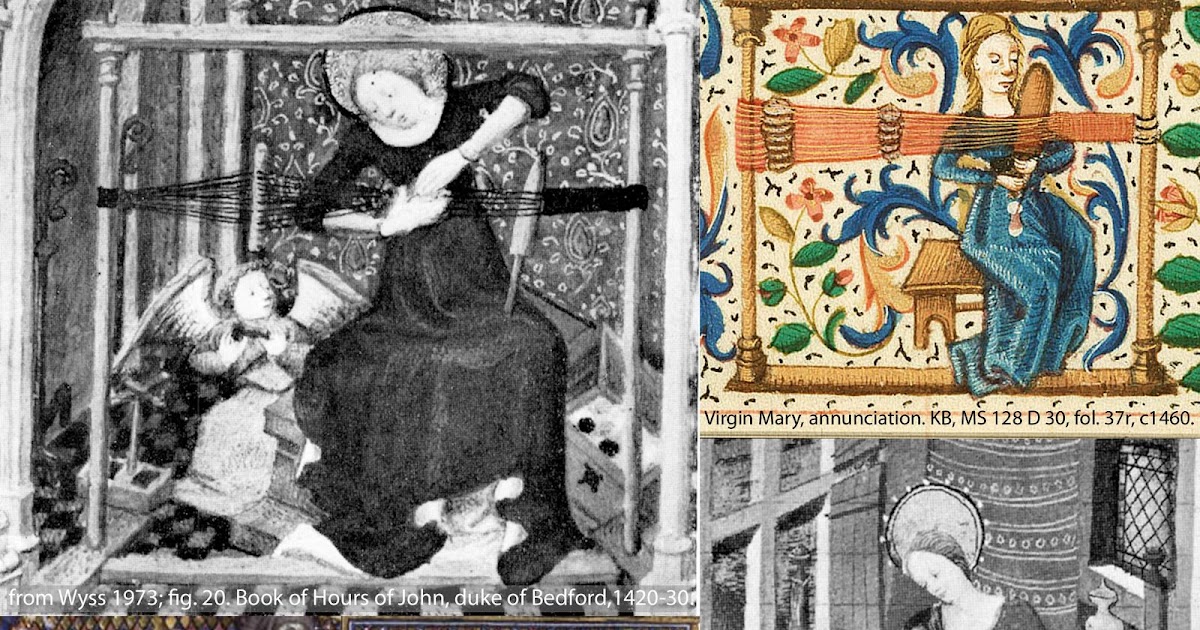 from Wyss 1973; fig. 20. Book of Hours of John, duke of Bedford,1420-30.
Virgin Mary, annunciation. KB, MS 128 D 30, fol. 37r, c1460.